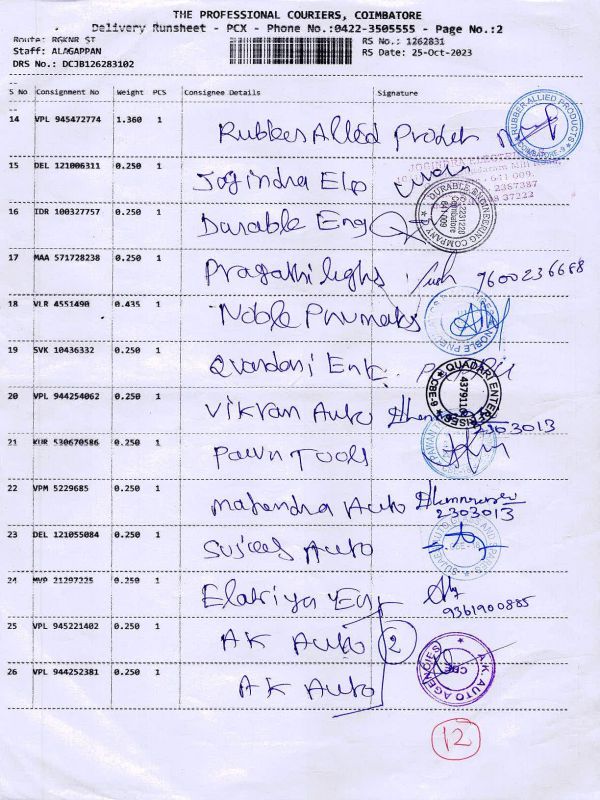 THE PROFESSIONAL COURIERS, COIMBATORE
Delivery Runsheet - PCX - Phone No.:0422-3505555 - Page No.:2
Route: RGKNR ST RS No.: 1262831
Staff: ALAGAPPAN RS Date: 25-Oct-2023
DRS No.: DCJB126283102
S No Consignment No Weight PCS Consignee Details Signature
14 VPL 945472774 1.360 1 Rubber Allied Produt RUBBER ALLIED PRODUCTS COIMBATORE-9
15 DEL 121006311 0.250 1 Jogindra Elp
641 009.
2387387
37222
16 IDR 100327757 0.250 1 Durable Eng DURABLE ENGINEERING COMPANY 2231220 Coimbatore 641-009
17 MAA 571728238 0.250 1 Pragathi 9600236688
18 VLR 4551490 0.435 1 Noble Pnumaks NOBLE
19 SVK 10436332 0.250 1 Quardani Ent. QUADARI ENTERPRISES CBE-9
20 VPL 944254062 0.250 1 Vikran Auto 2303013
21 KUR 530670586 0.250 1 Pawn Tools
22 VPM 5229685 0.250 1 Mahendra Auto 2303013
23 DEL 121055084 0.250 1 Sujees Auto
24 MVP 21297225 0.250 1 Elatriya 9361900885
25 VPL 945221402 0.250 1 AK Auto 2
26 VPL 944252381 0.250 1 AK Auto A.K. AUTO AGENCIES CBE
12